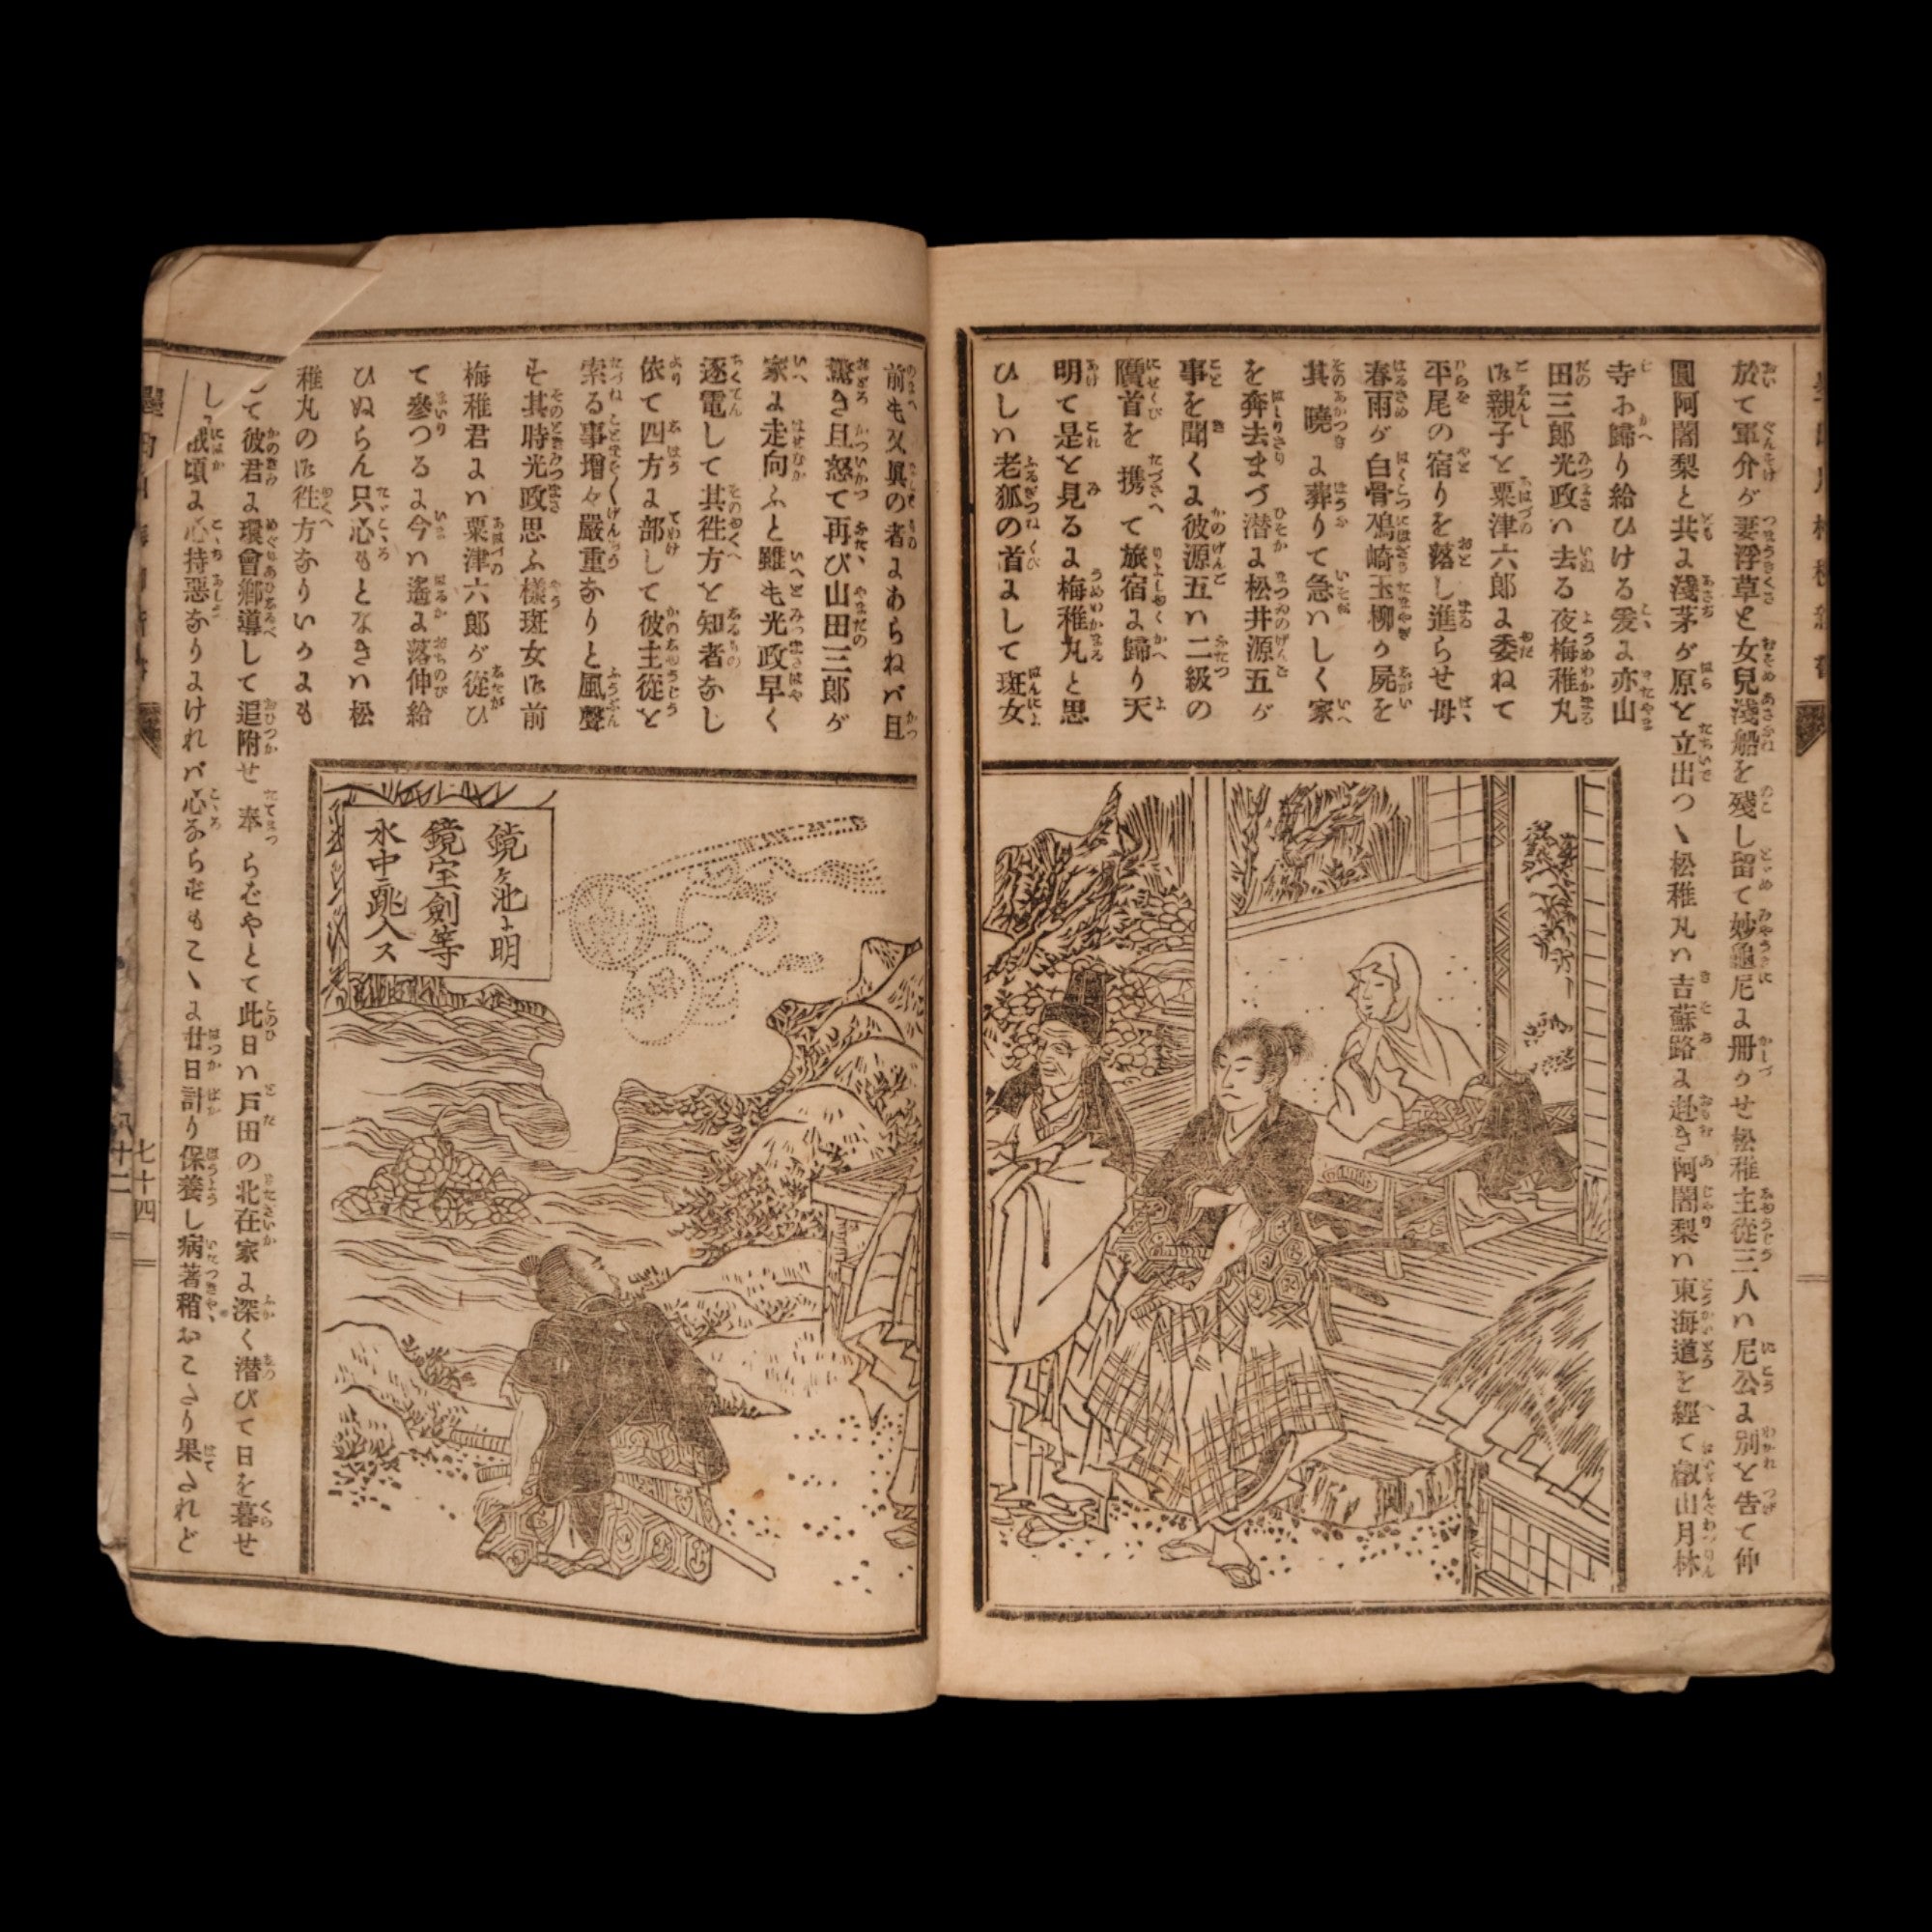 於て軍介が妻浮草と女兒淺船を殘し留て妙龜尼よ冊かせ松稚主從三人ハ尼公よ別と告て仲
圓阿闍梨と共よ淺茅が原と立出つゝ松稚丸ハ吉蘇路よ赴き阿闍梨ハ東海道を經て叡山月林
寺お歸り給ひける爰よ亦山
田三郎光政ハ去る夜梅稚丸
は親子と粟津六郎よ委ねて
平尾の宿りを落し進らせ母
春雨が白骨鳰崎玉柳の屍を
其曉よ葬りて急ハしく家
を奔去まづ潜よ松井源五が
事を聞くよ彼源五ハ二級の
贋首を携て旅宿よ歸り天
明て是と見るよ梅稚丸と思
ひしハ老狐の首よして斑女
前も又眞の者よあらねバ且
驚き且怒て再び山田三郎が
家よ走向ふと雖も光政早く
逐電して其徃方と知者なし
依て四方よ部して彼主從と
索る事增々嚴重なりと風聲
す其時光政思ふ樣斑女は前
梅稚君よハ粟津六郎が從ひ
て參つるよ今ハ遙よ落伸給
ひぬらん只心もとなきハ松
稚丸のは徃方なりいかよも
して彼君よ環會鄕導して追附せ奉らむやとて此日ハ戸田の北在家よ深く潜びて日を暮せ
しよ頃よ心持惡なりよけれバ心ならずもこゝよ廿日計り保養し病著稍おこたり果されど
鏡ヶ池よ明
鏡宝劍等
水中ニ跳入ス
七十四